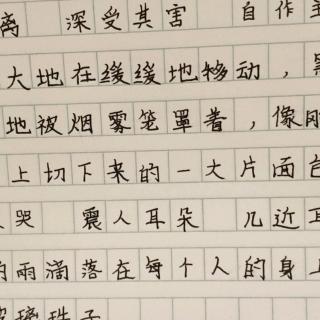 离 深受其害 自作主
大地在缓缓地移动，黑
地被烟雾笼罩着，像刚
上切下来的一大片面包
哭 震人耳朵 几近耳
的雨滴落在每个人的身上
玻璃珠子